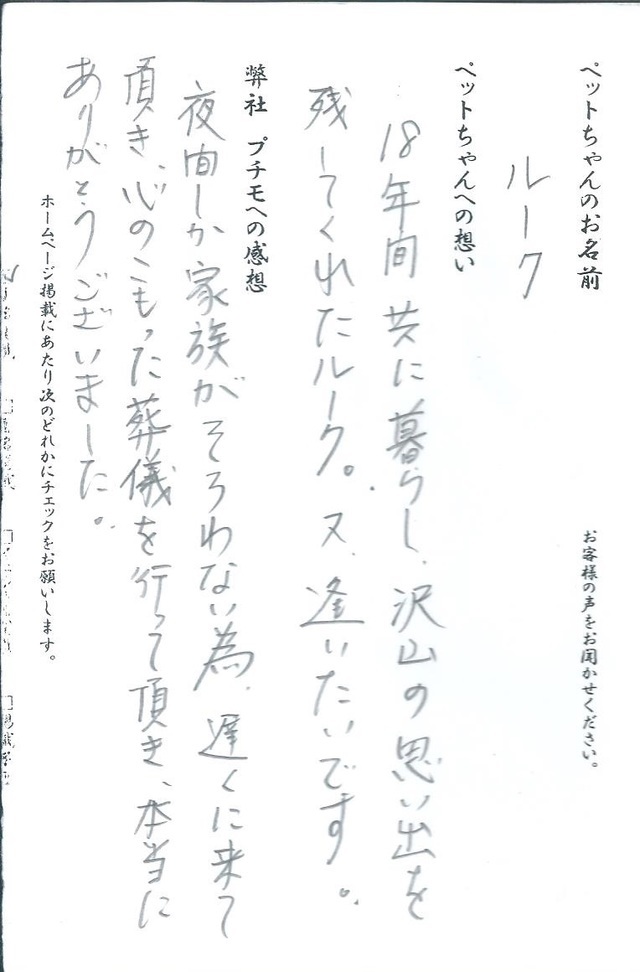 お客様の声をお聞かせください。
ペットちゃんのお名前
ルーク
ペットちゃんへの想い
18年間共に暮らし、沢山の思い出を
残してくれたルーク。又、逢いたいです。
弊社 プチモへの感想
夜間しか家族がそろわない為、遅くに来て
頂き、心のこもった葬儀を行って頂き、本当に
ありがとうございました。
ホームページ掲載にあたり次のどれかにチェックをお願いします。